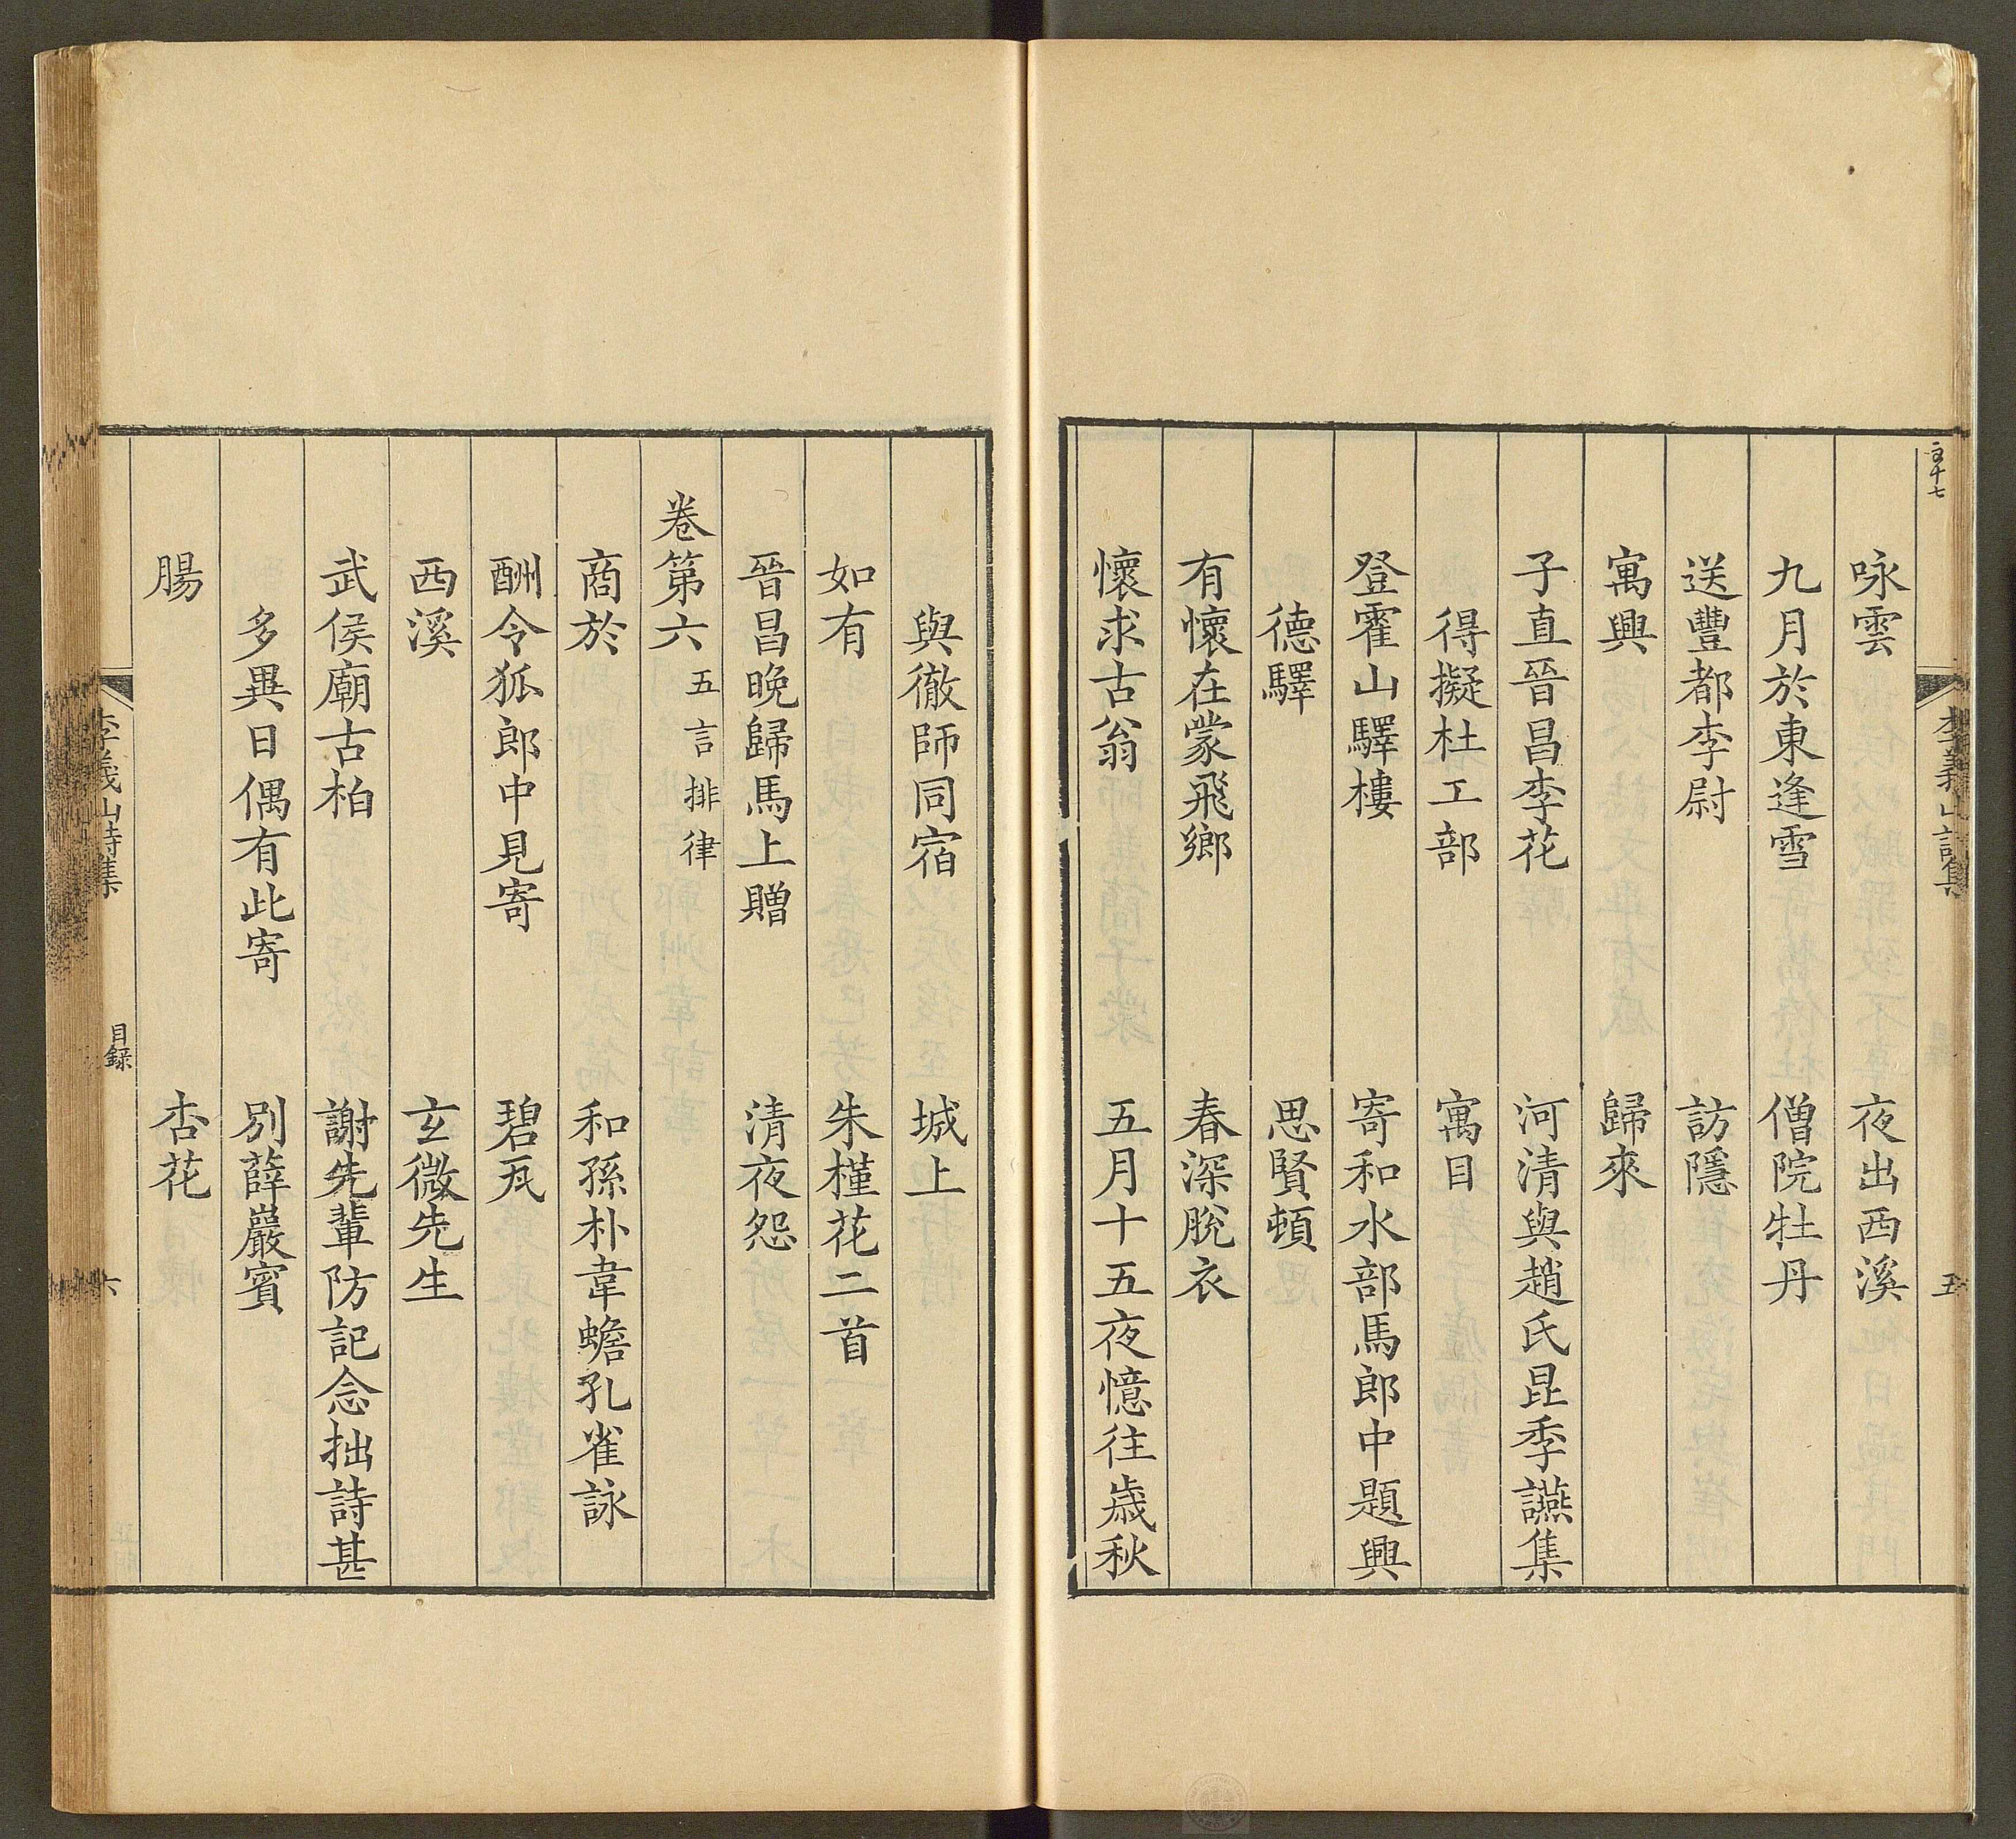 咏雲　夜出西溪
九月於東逢雪　僧院牡丹
送豐都李尉　訪隱
寓興　歸來
子直晉昌李花　河清與趙氏昆季讌集
得擬杜工部　寓目
登霍山驛樓　寄和水部馬郎中題興
德驛　思賢頓
有懷在蒙飛鄉　春深脫衣
懷求古翁　五月十五夜憶往歲秋
與徹師同宿　城上
如有　朱槿花二首
晉昌晚歸馬上贈　清夜怨
卷第六　五言排律
商於　和孫朴韋蟾孔雀詠
酬令狐郎中見寄　碧瓦
西溪　玄微先生
武侯廟古柏　謝先輩防記念拙詩甚
多異日偶有此寄　別薛巖賓
腸　杏花
李義山詩集　目録　六
李義山詩集　五